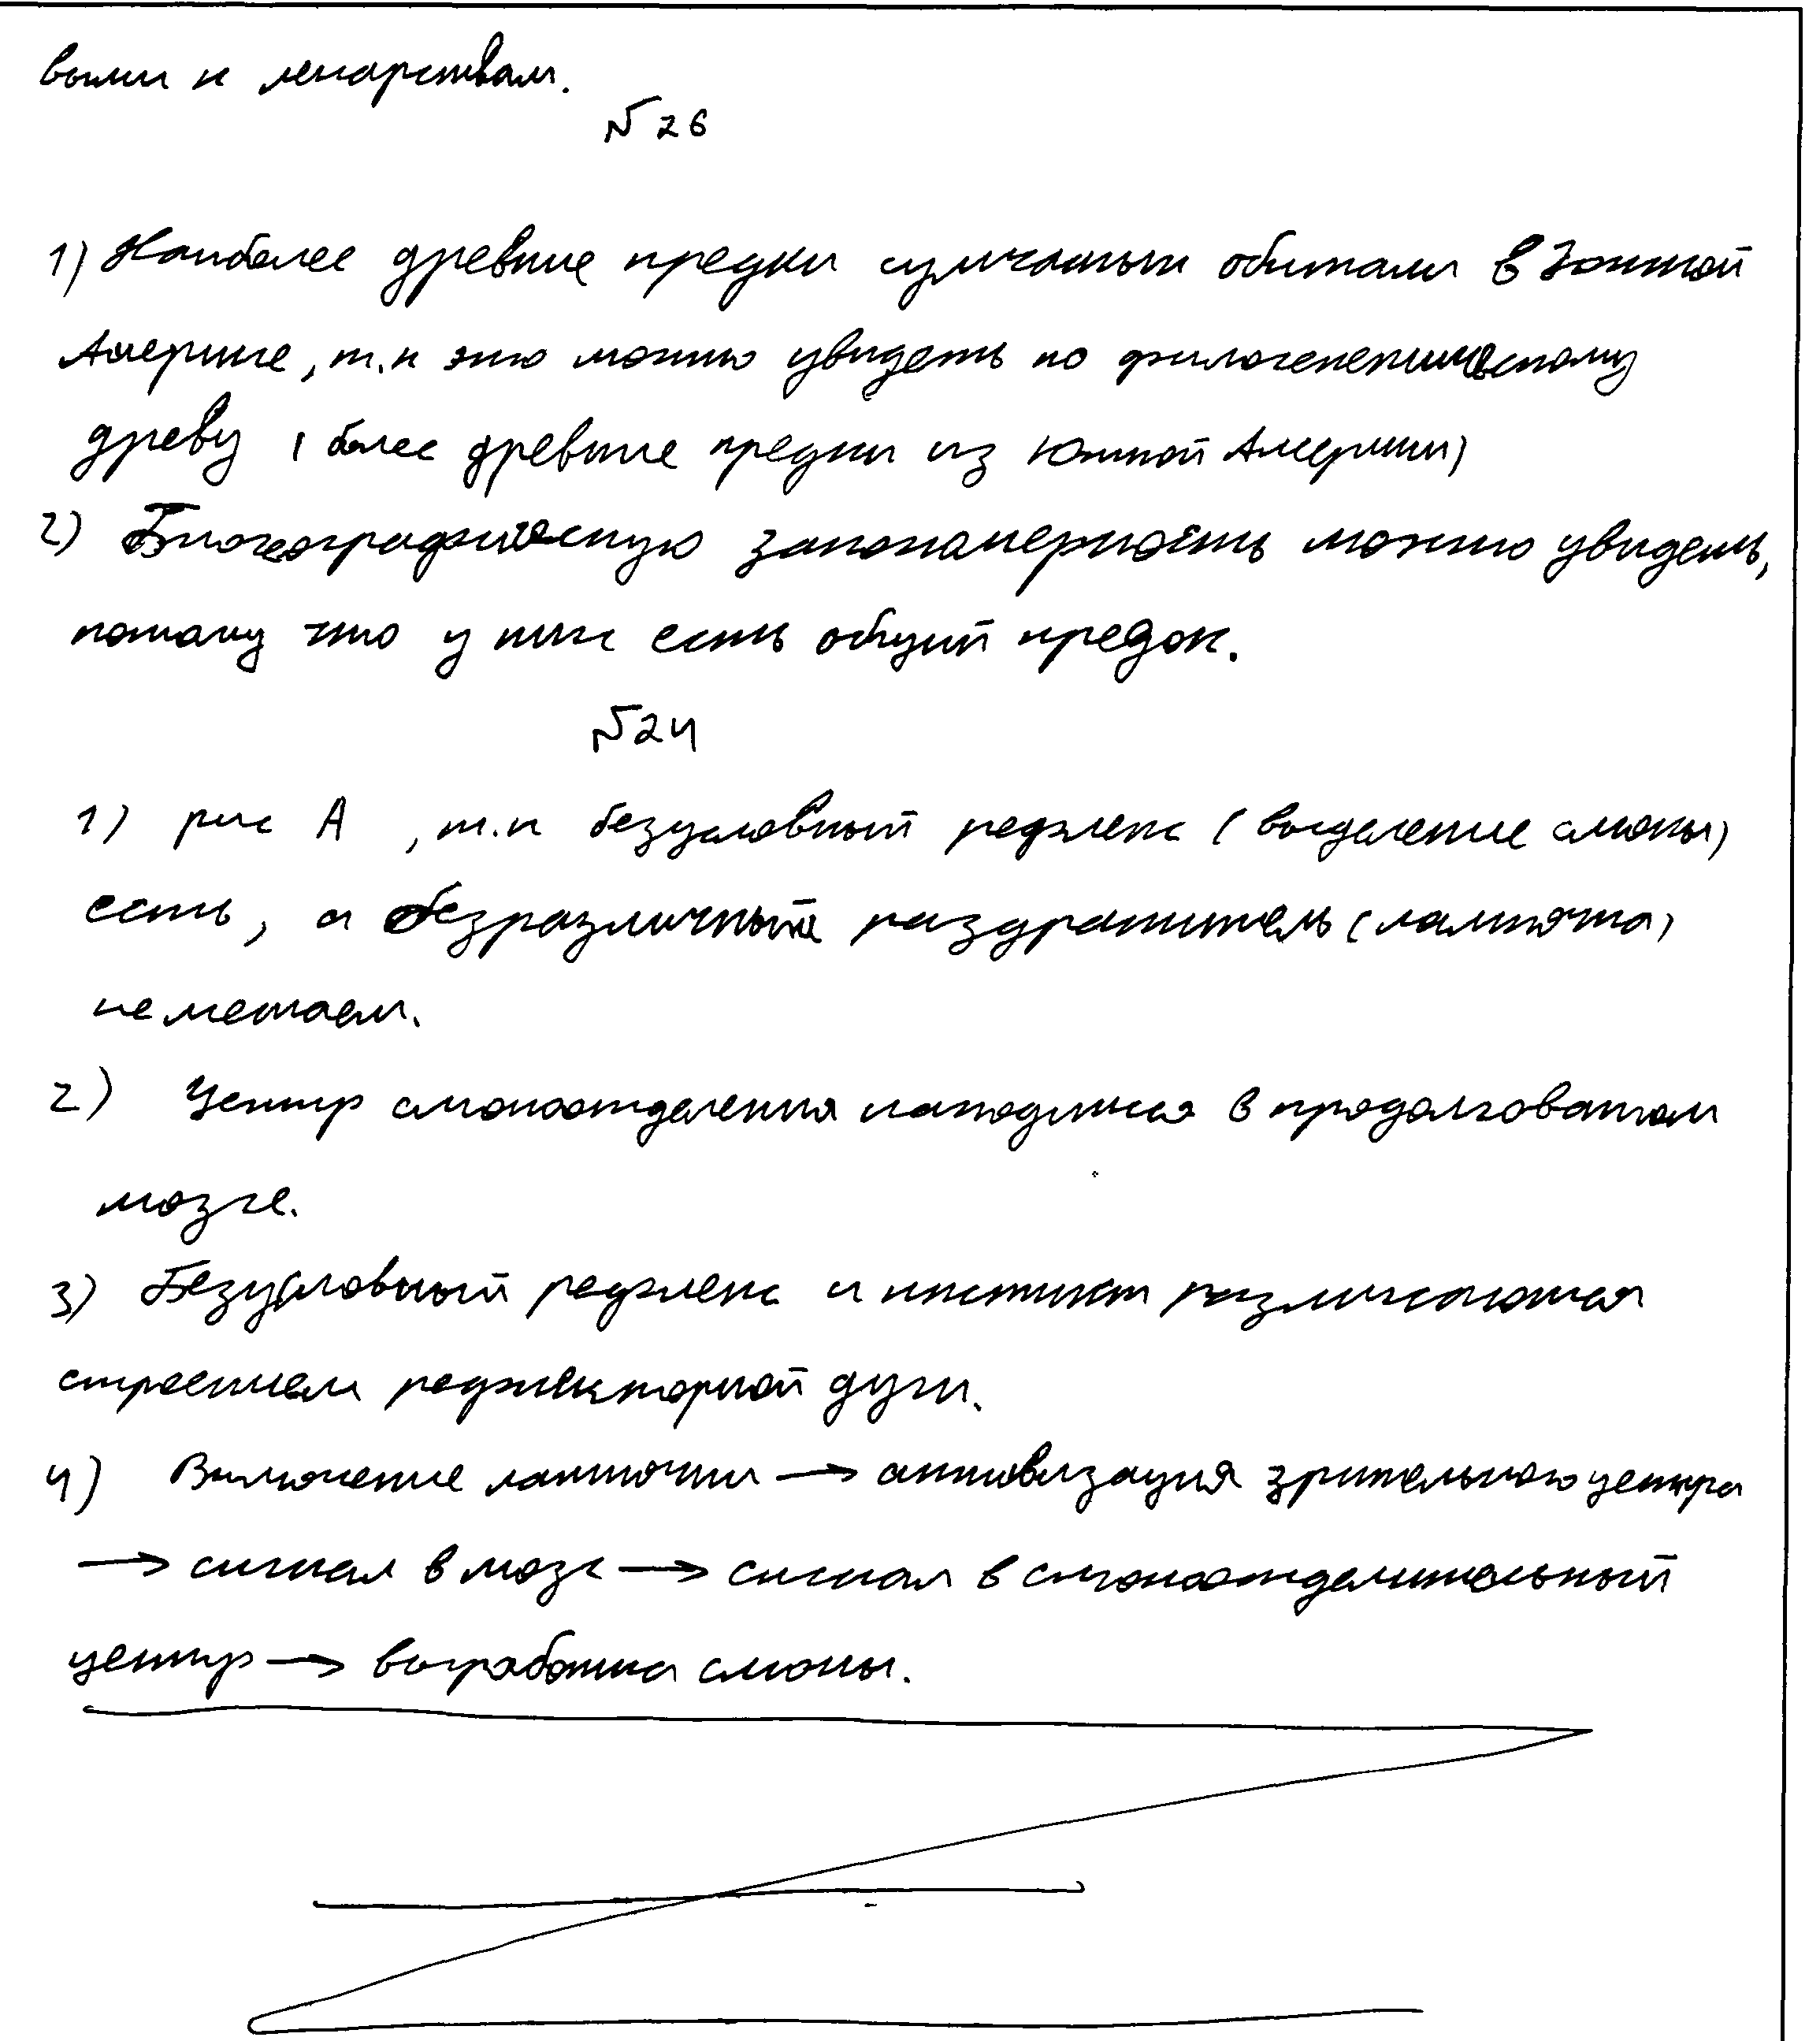 выми к лекарствам.
№ 26
1) Наиболее древние предки сумчатых обитали в Южной
Америке, т.к это можно увидеть по филогенетическому
древу (более древние предки из Южной Америки)
2) Биогеографическую закономерность можно увидеть,
потому что у них есть общий предок.
№24
1) рис А , т.к безусловный рефлекс (выделение слюны)
есть, а безразличный раздражитель (лампочка)
не мешает.
2) Центр слюноотделения находится в продолговатом
мозге.
3) Безусловный рефлекс и инстинкт различаются
строением рефлекторной дуги.
4) Включение лампочки → активизация зрительного центра
→ сигнал в мозг → сигнал в слюноотделительный
центр → выработка слюны.